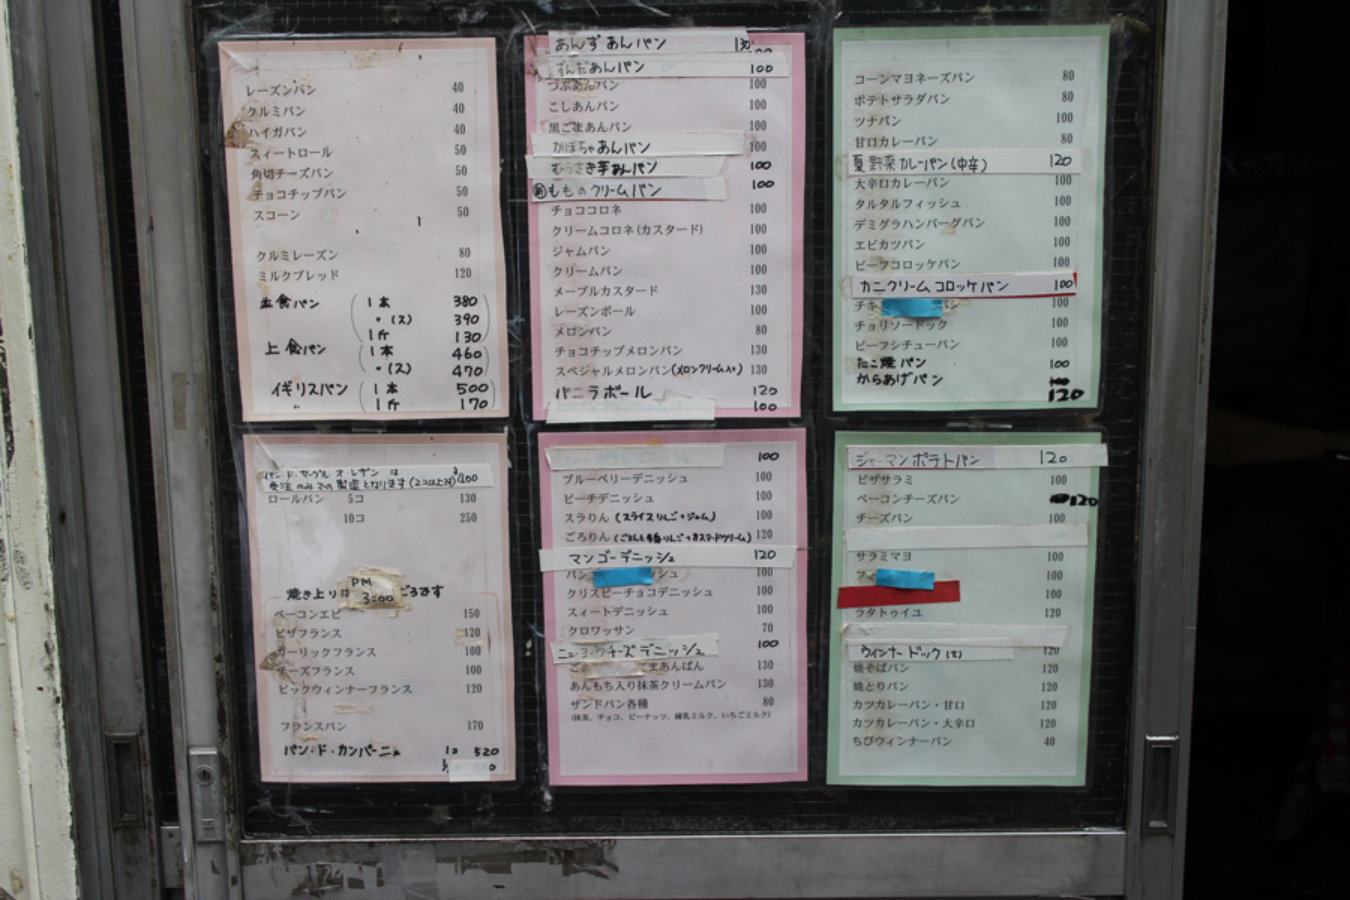 レーズンパン 40
クルミパン 40
ハイガパン 40
スィートロール 50
角切チーズパン 50
チョコチップパン 50
スコーン 50
クルミレーズン 80
ミルクブレッド 120
主食パン 1本 380
〃 (ス) 390
1斤 130
上食パン 1本 460
〃 (ス) 470
イギリスパン 1本 500
〃 1斤 170
あんずあんパン 130
ずんだあんパン 100
つぶあんパン 100
こしあんパン 100
黒ごまあんパン 100
かぼちゃあんパン 100
むらさき芋あんパン 100
新 もものクリームパン 100
チョココロネ 100
クリームコロネ(カスタード) 100
ジャムパン 100
クリームパン 100
メープルカスタード 130
レーズンボール 100
メロンパン 80
チョコチップメロンパン 130
スペシャルメロンパン(メロンクリーム入り) 130
バニラボール 120
100
コーンマヨネーズパン 80
ポテトサラダパン 80
ツナパン 100
甘口カレーパン 80
夏野菜カレーパン(中辛) 120
大辛口カレーパン 100
タルタルフィッシュ 100
デミグラハンバーグパン 100
エビカツパン 100
ビーフコロッケパン 100
カニクリームコロッケパン 100
チキ パン 100
チョリソードック 100
ビーフシチューパン 100
たこ焼パン 100
からあげパン 120
パン・ド・セーグル オ・レザン は 400
受注のみでの製造となります(2コ以上対)
ロールパン 5コ 130
10コ 250
焼き上りは PM 3:00 ごろです
ベーコンエピ 150
ピザフランス 120
ガーリックフランス 100
チーズフランス 100
ビックウィンナーフランス 120
フランスパン 170
パン・ド・カンパーニュ 1コ 520
100
ブルーベリーデニッシュ 100
ピーチデニッシュ 100
スラりん(スライスりんご+ジャム) 100
ごろりん 120
マンゴーデニッシュ 120
パン シュ 100
クリスピーチョコデニッシュ 100
スィートデニッシュ 100
クロワッサン 70
ニューヨークチーズデニッシュ 100
ご まあんぱん 130
あんもち入り抹茶クリームパン 130
サンドパン各種 80
(抹茶、チョコ、ピーナッツ、練乳ミルク、いちごミルク)
ジャーマンポテトパン 120
ピザサラミ 100
ベーコンチーズパン 120
チーズパン 100
サラミマヨ 100
フィ 100
100
ラタトゥイユ 120
ウインナードック 120
焼そばパン 120
焼とりパン 120
カツカレーパン・甘口 120
カツカレーパン・大辛口 120
ちびウィンナーパン 40